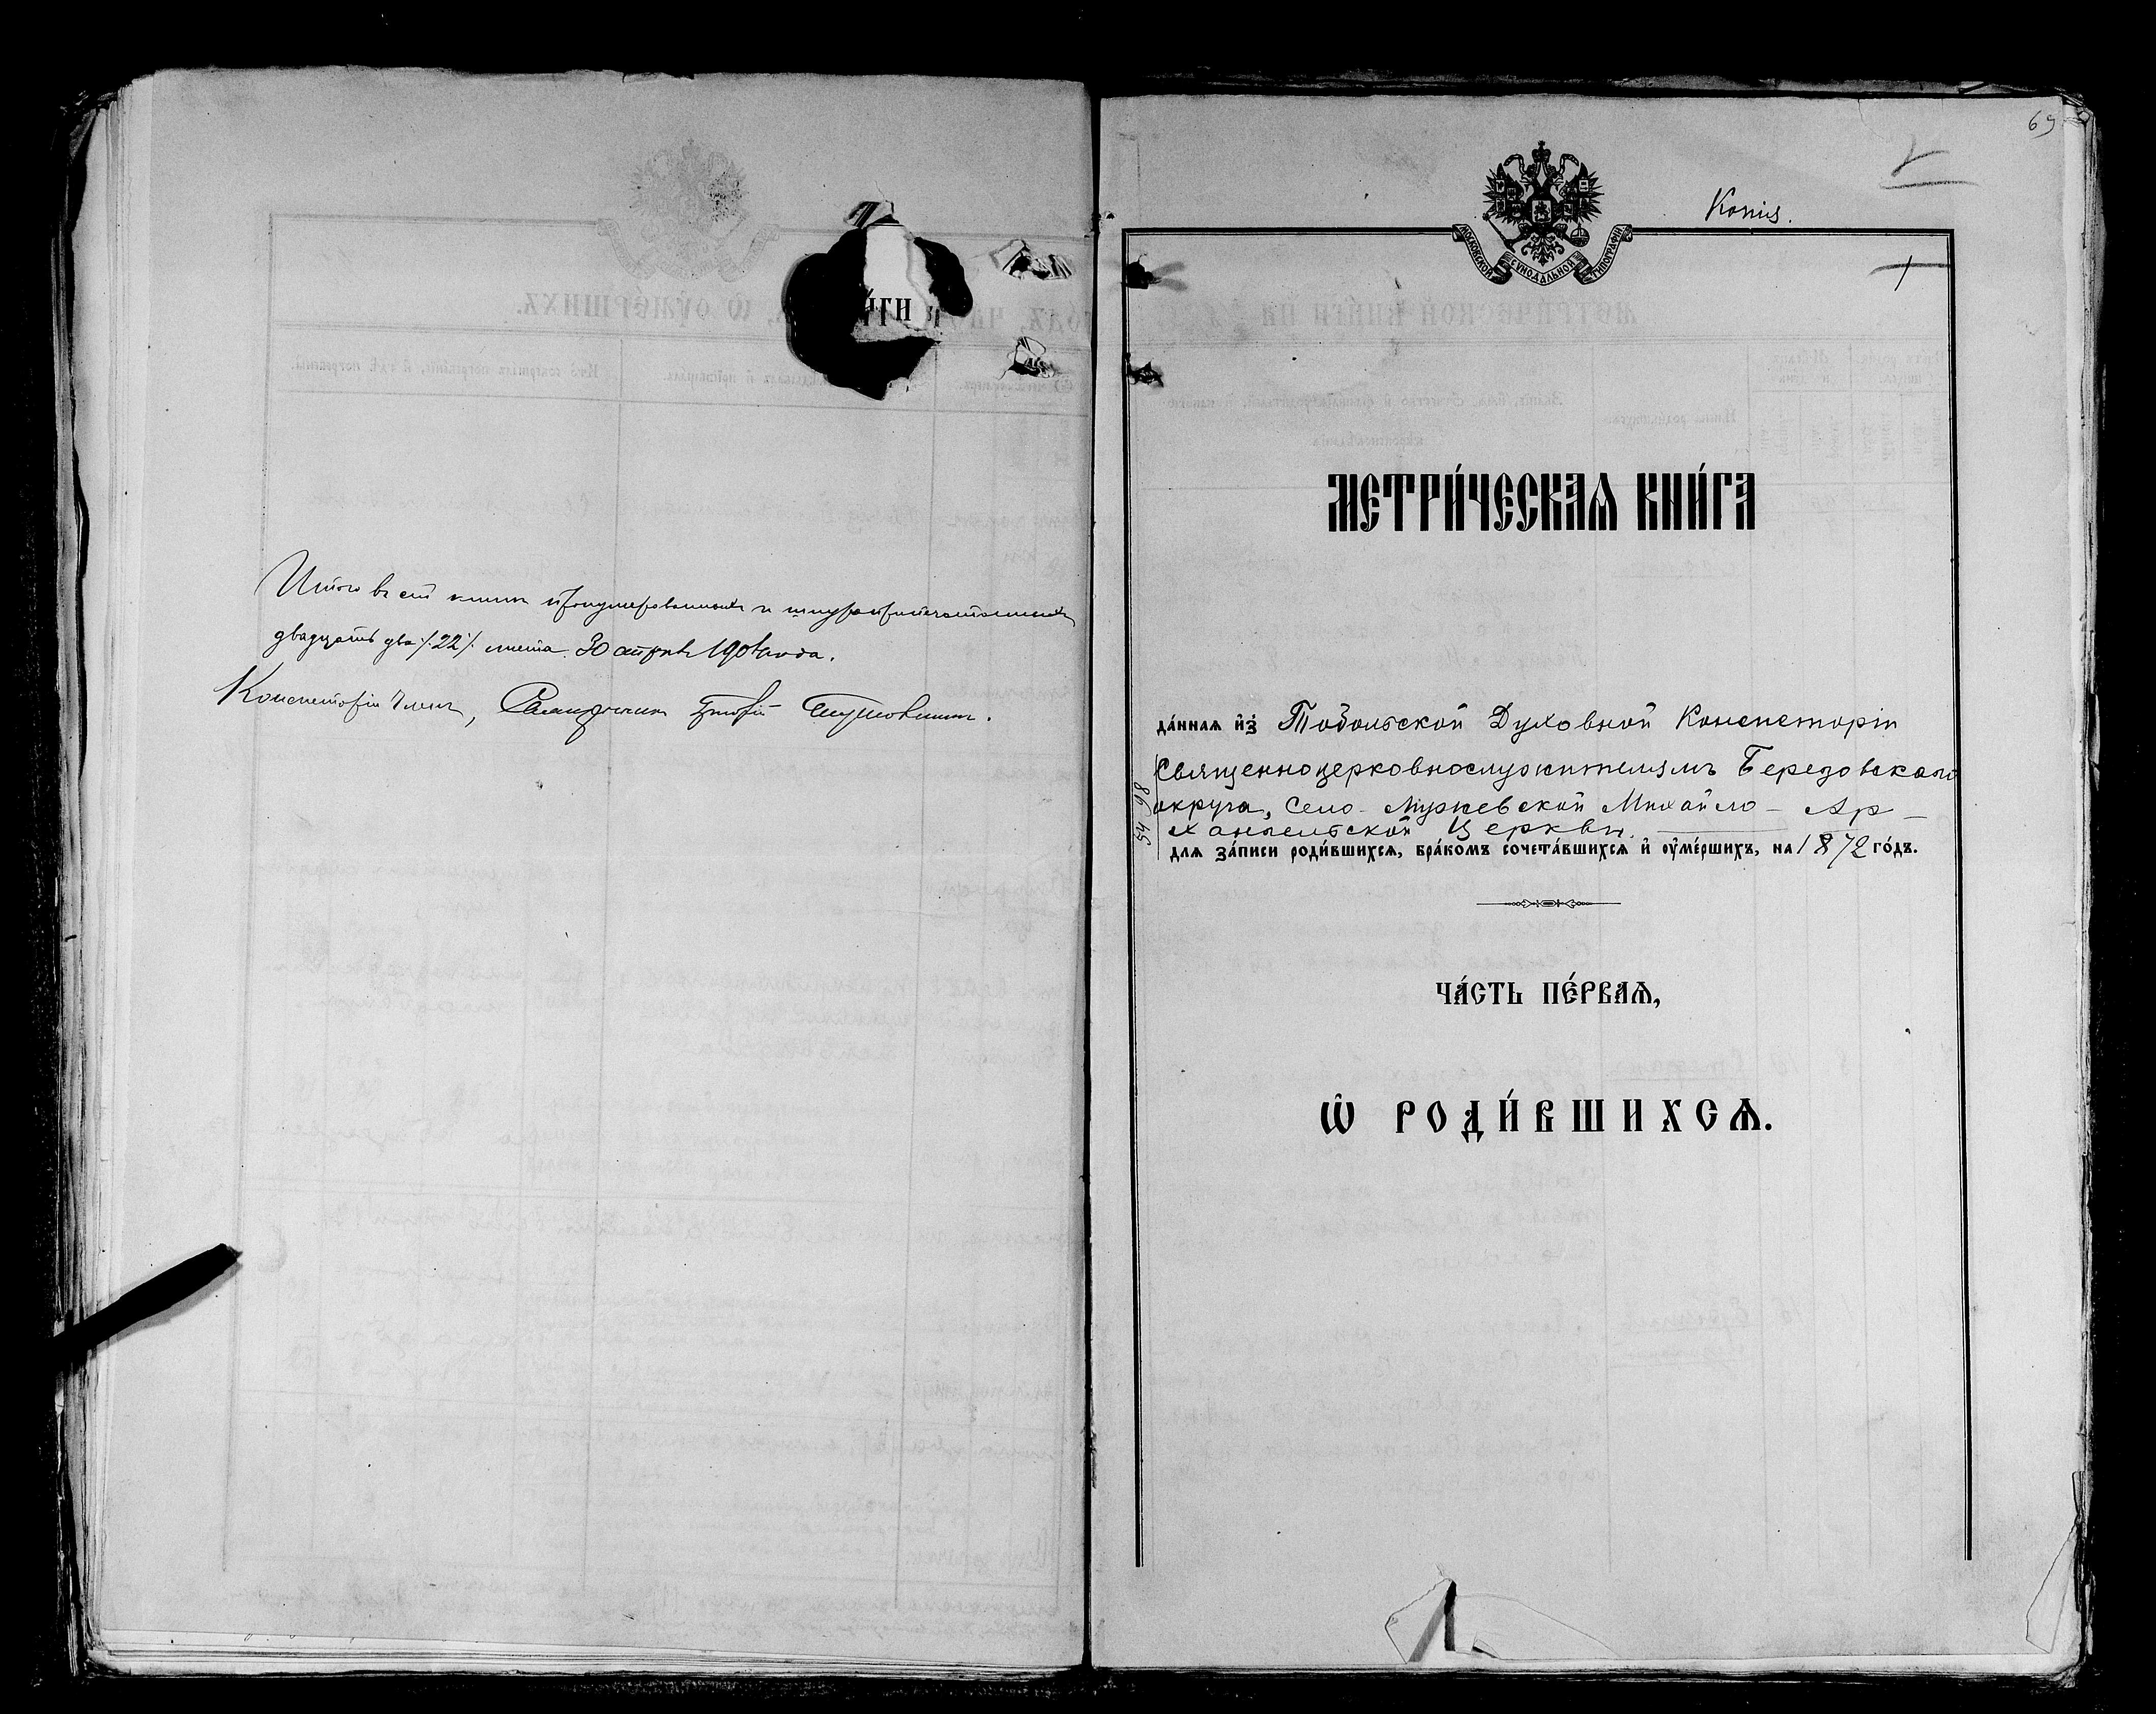 ИГИ
Итого въ сей книгѣ пронумерованныхъ и шнуроприпечатанныхъ
двадцать два /:22:/ листа. 30 апрѣля 1901 года.
Консисторіи Членъ, Священникъ
69
Копія.
МОСКОВСКОЙ СѴНОДАЛЬНОЙ ТИПОГРАФІИ
1
МЕТРИ́ЧЕСКАѦ КНИ́ГА
да́ннаѧ и҆з̾ Тобольской Духовной Консисторіи
Священноцерковнослужителямъ Березовскаго
округа, село-Мужевской Михайло-Ар-
хангельской Церкви.
для за́писи роди́вшихсѧ, бра́комъ сочета́вшихсѧ и҆ оу҆ме́ршихъ, на 1872 го́дъ.
54 98
ЧА́СТЬ ПЕ́РВАѦ,
Ѡ҆ РОДИ́ВШИХСѦ.